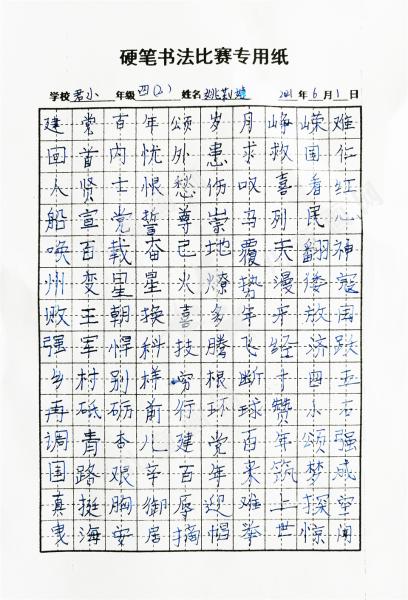 硬笔书法比赛专用纸
学校 君小 年级 四(2) 姓名 姚 2021 年 6 月 1 日
建党百年颂岁月峥嵘难
回首内忧外患求救国仁
人贤士恨愁伤叹喜看红
船宣党誓尊崇马列民心
唤百载奋己地覆天翻神
州变星星火燎势漫倭寇
败王朝换喜多年开放国
强军悍科技腾飞经济跌
乡村别样穷根断十四五
再砥砺前行环球赞小右
调青春儿建党百年颂强
国路艰辛百年来筑梦成
真挺胸御辱迎难上探空
曳海安居摘帽举世惊闻